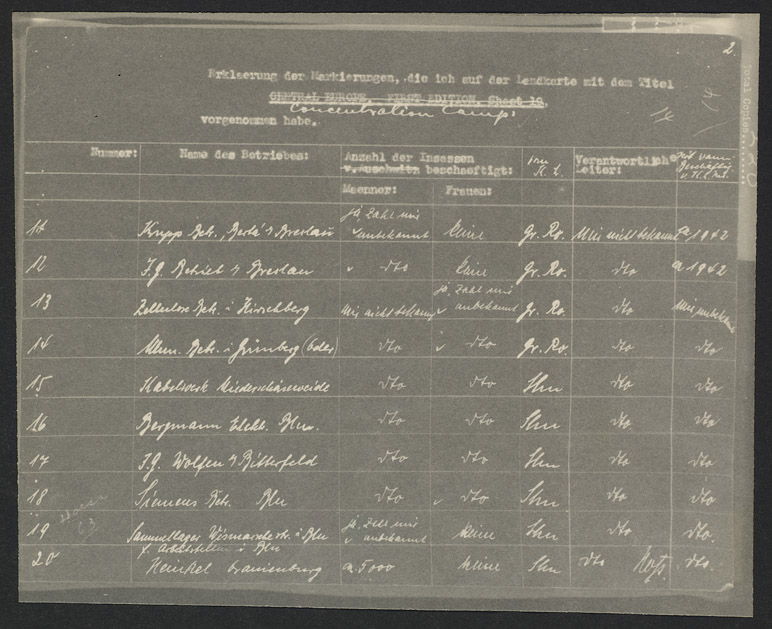 2.
Erklaerung der Markierungen, die ich auf der Landkarte mit dem Titel
CENTRAL EUROPE, FIRST EDITION, Sheet 19,
Concentration Camps
14
vorgenommen habe.
Total Copies
Nummer: Name des Betriebes: Anzahl der Insassen v. Auschwitz beschaeftigt: vom K. L. Verantwortliche Leiter: Zeit wann Beschäftig. v. K.L. Ins.
Maenner: Frauen:
11 Krupp Betr., Berta b/ Breslau ja, Zahl mir unbekannt keine Gr. Ro. Mir nicht bekannt ca 1942
12 I.G. Betrieb b/ Breslau dto keine Gr. Ro. dto ca 1942
13 Zellulose Betr. i. Hirschberg Mir nicht bekannt ja, Zahl mir unbekannt Gr. Ro. dto Mir unbekannt
14 Betr. i. Grünberg (Oder) dto dto Gr. Ro. dto dto
15 Kabelwerk Niederschöneweide dto dto Shn dto dto
16 Bergmann Elekt. Bln. dto dto Shn dto dto
17 I.G. Wolfen b/ Bitterfeld dto dto Shn dto dto
18 Siemens Betr. Bln dto dto Shn dto dto
19 Sammellager Wismarerstr. i. Bln ja, Zahl mir unbekannt keine Shn dto dto.
f. Arbeitstellen i. Bln
20 Heinkel Oranienburg ca. 5000 keine Shn dto dto.